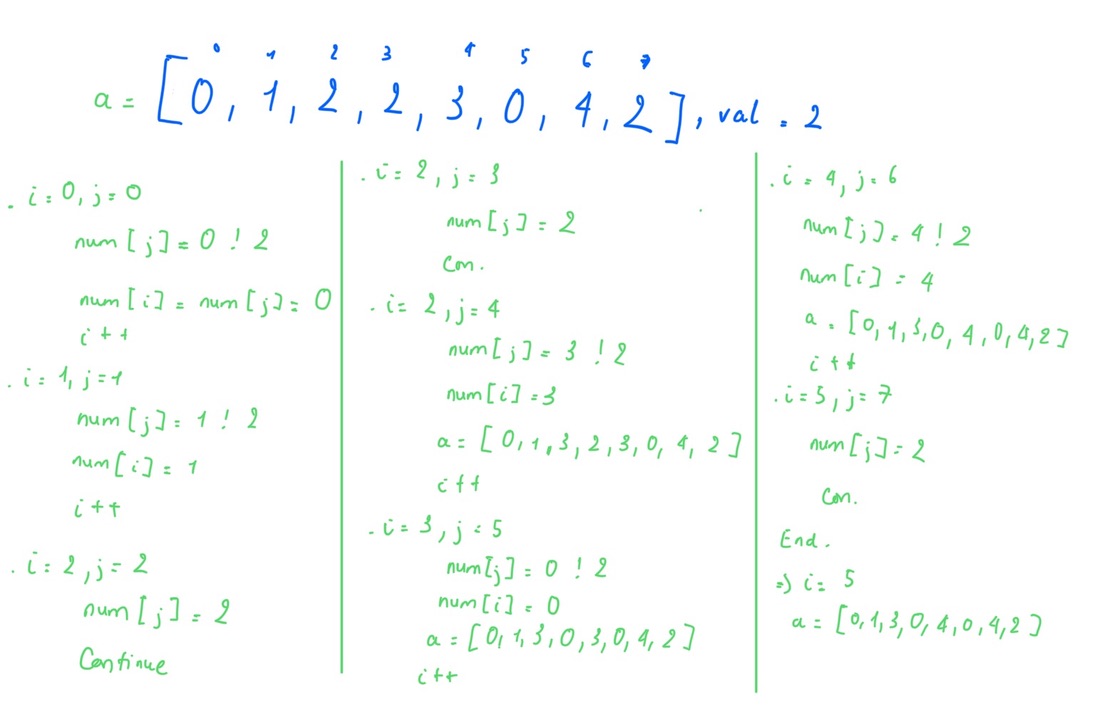 0 1 2 3 4 5 6 7
a = [0, 1, 2, 2, 3, 0, 4, 2], val = 2
. i = 0, j = 0
num[j] = 0 ! 2
num[i] = num[j] = 0
i++
. i = 1, j = 1
num[j] = 1 ! 2
num[i] = 1
i++
. i = 2, j = 2
num[j] = 2
Continue
. i = 2, j = 3
num[j] = 2
Con.
. i = 2, j = 4
num[j] = 3 ! 2
num[i] = 3
a = [0, 1, 3, 2, 3, 0, 4, 2]
i++
. i = 3, j = 5
num[j] = 0 ! 2
num[i] = 0
a = [0, 1, 3, 0, 3, 0, 4, 2]
i++
. i = 4, j = 6
num[j] = 4 ! 2
num[i] = 4
a = [0, 1, 3, 0, 4, 0, 4, 2]
i++
. i = 5, j = 7
num[j] = 2
Con.
End.
=> i = 5
a = [0, 1, 3, 0, 4, 0, 4, 2]